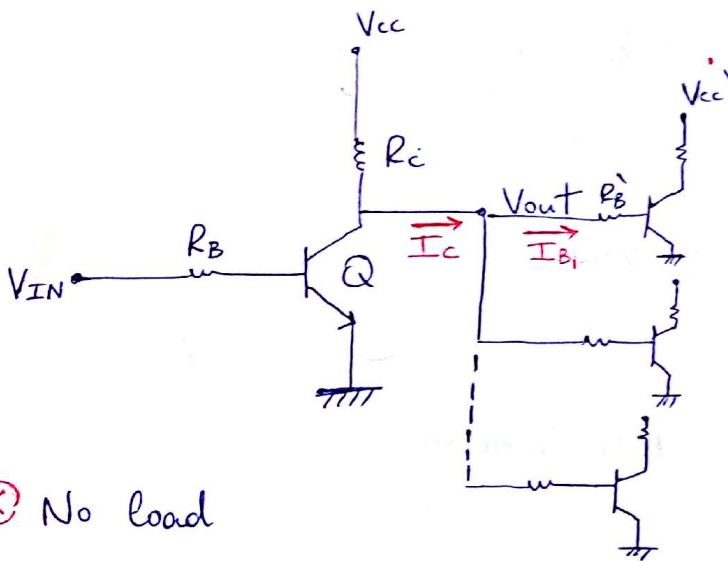 Vcc
Vcc'
Rc
Vout
RB'
RB
IC
IB1
VIN
Q
No load